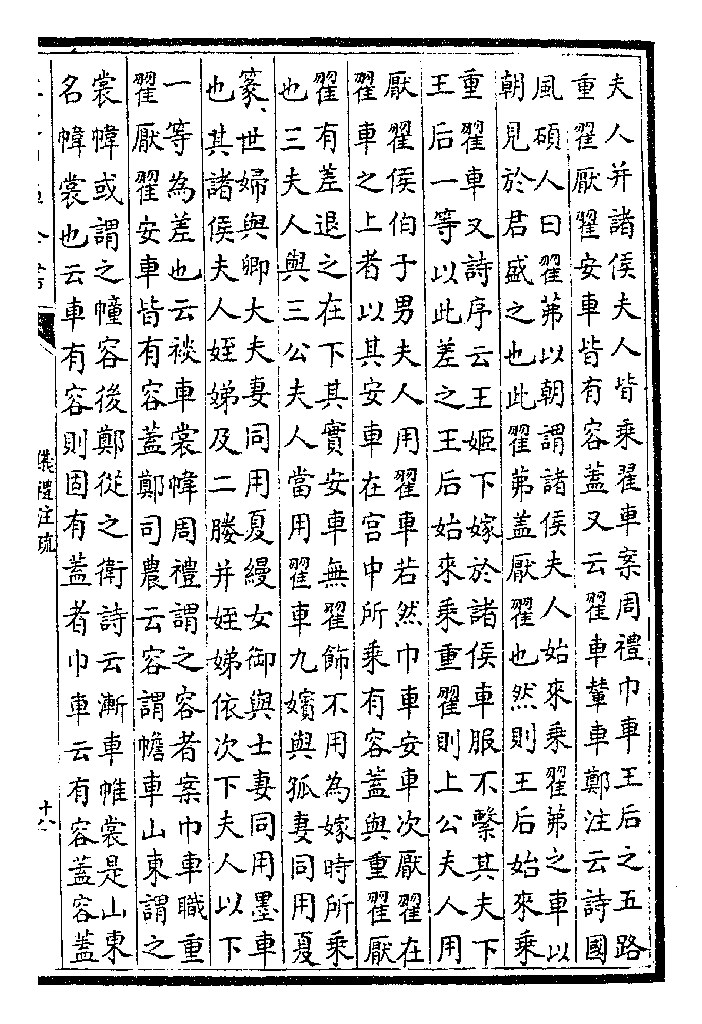 夫人并諸侯夫人皆乘翟車案周禮巾車王后之五路
重翟厭翟安車皆有容蓋又云翟車輦車鄭注云詩國
風碩人曰翟茀以朝謂諸侯夫人始來乘翟茀之車以
朝見於君盛之也此翟茀蓋厭翟也然則王后始來乘
重翟車又詩序云王姬下嫁於諸侯車服不繫其夫下
王后一等以此差之王后始來乘重翟則上公夫人用
厭翟侯伯子男夫人用翟車若然巾車安車次厭翟在
翟車之上者以其安車在宫中所乘有容蓋與重翟厭
翟有差退之在下其實安車無翟飾不用為嫁時所乘
也三夫人與三公夫人當用翟車九嬪與孤妻同用夏
篆世婦與卿大夫妻同用夏縵女御與士妻同用墨車
也其諸侯夫人姪娣及二媵并姪娣依次下夫人以下
一等為差也云裧車裳幃周禮謂之容者案巾車職重
翟厭翟安車皆有容蓋鄭司農云容謂幨車山東謂之
裳幃或謂之幢容後鄭從之衛詩云漸車帷裳是山東
名幃裳也云車有容則固有蓋者巾車云有容蓋容蓋
儀禮注疏